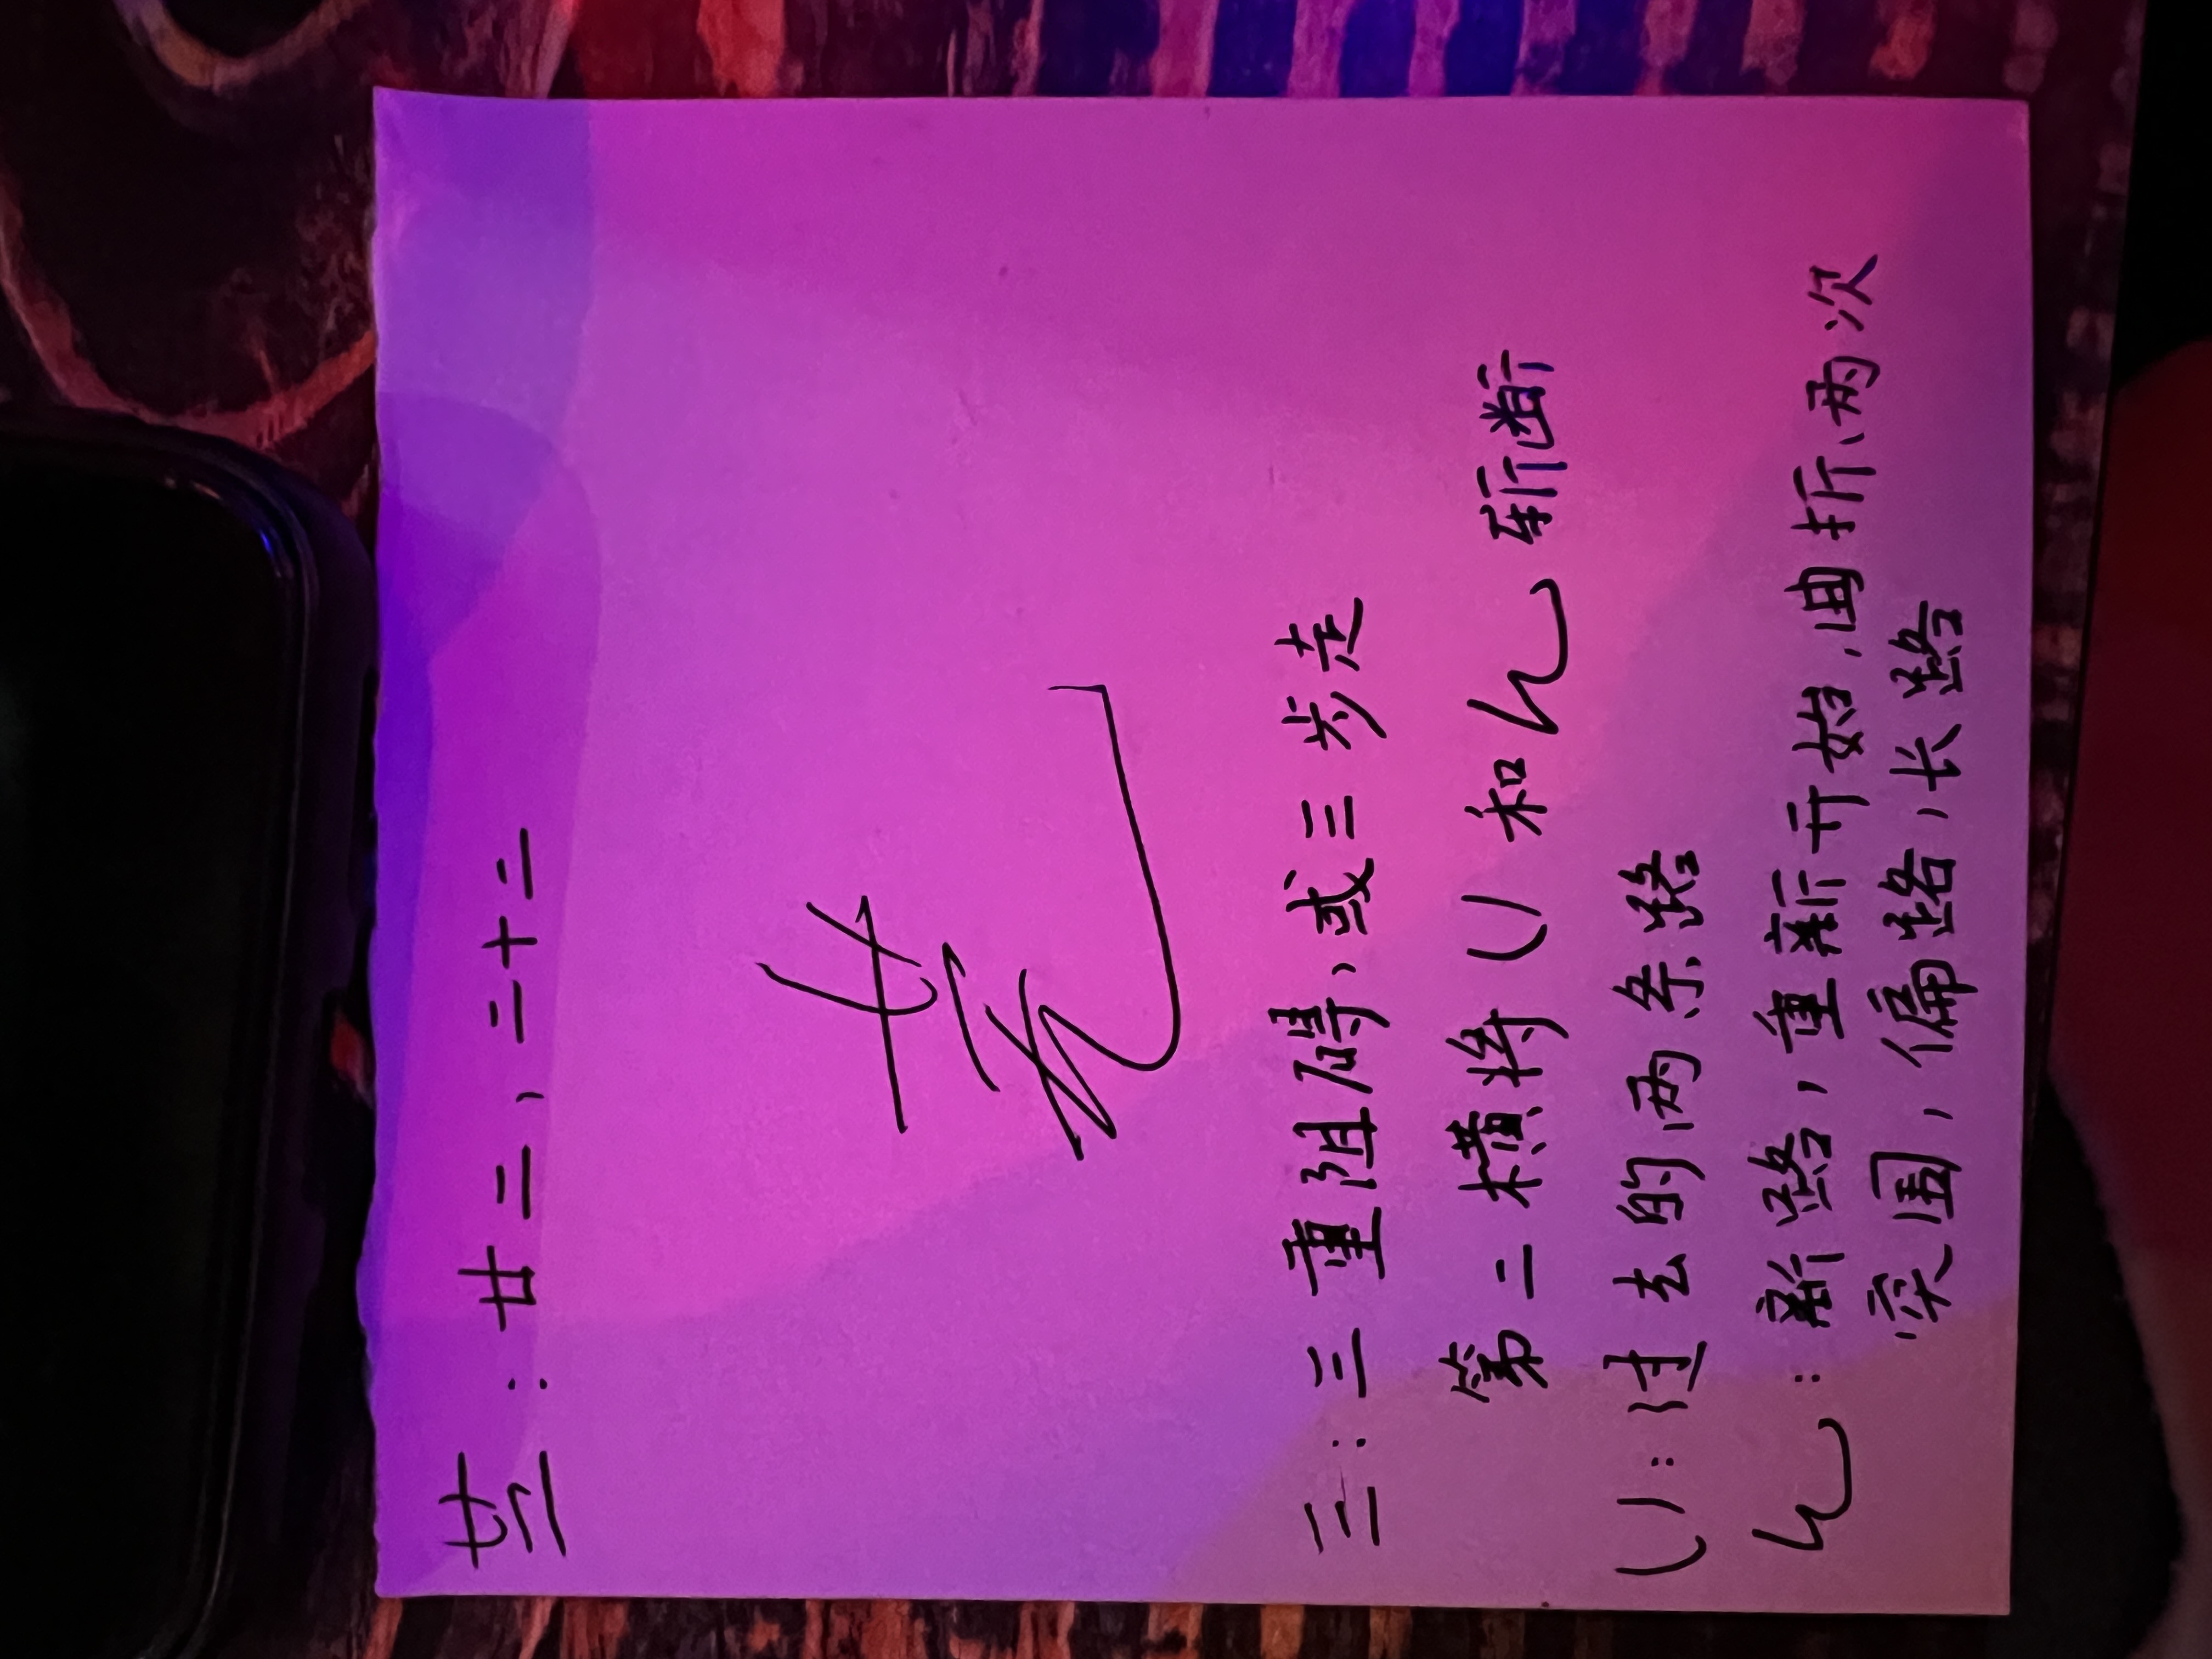 ：廿二，二十二
三：三重阻碍，或三步走
第二横将 和 斩断
：过去的两条路
：新路，重新开始，曲折两次
突围，偏路，长路